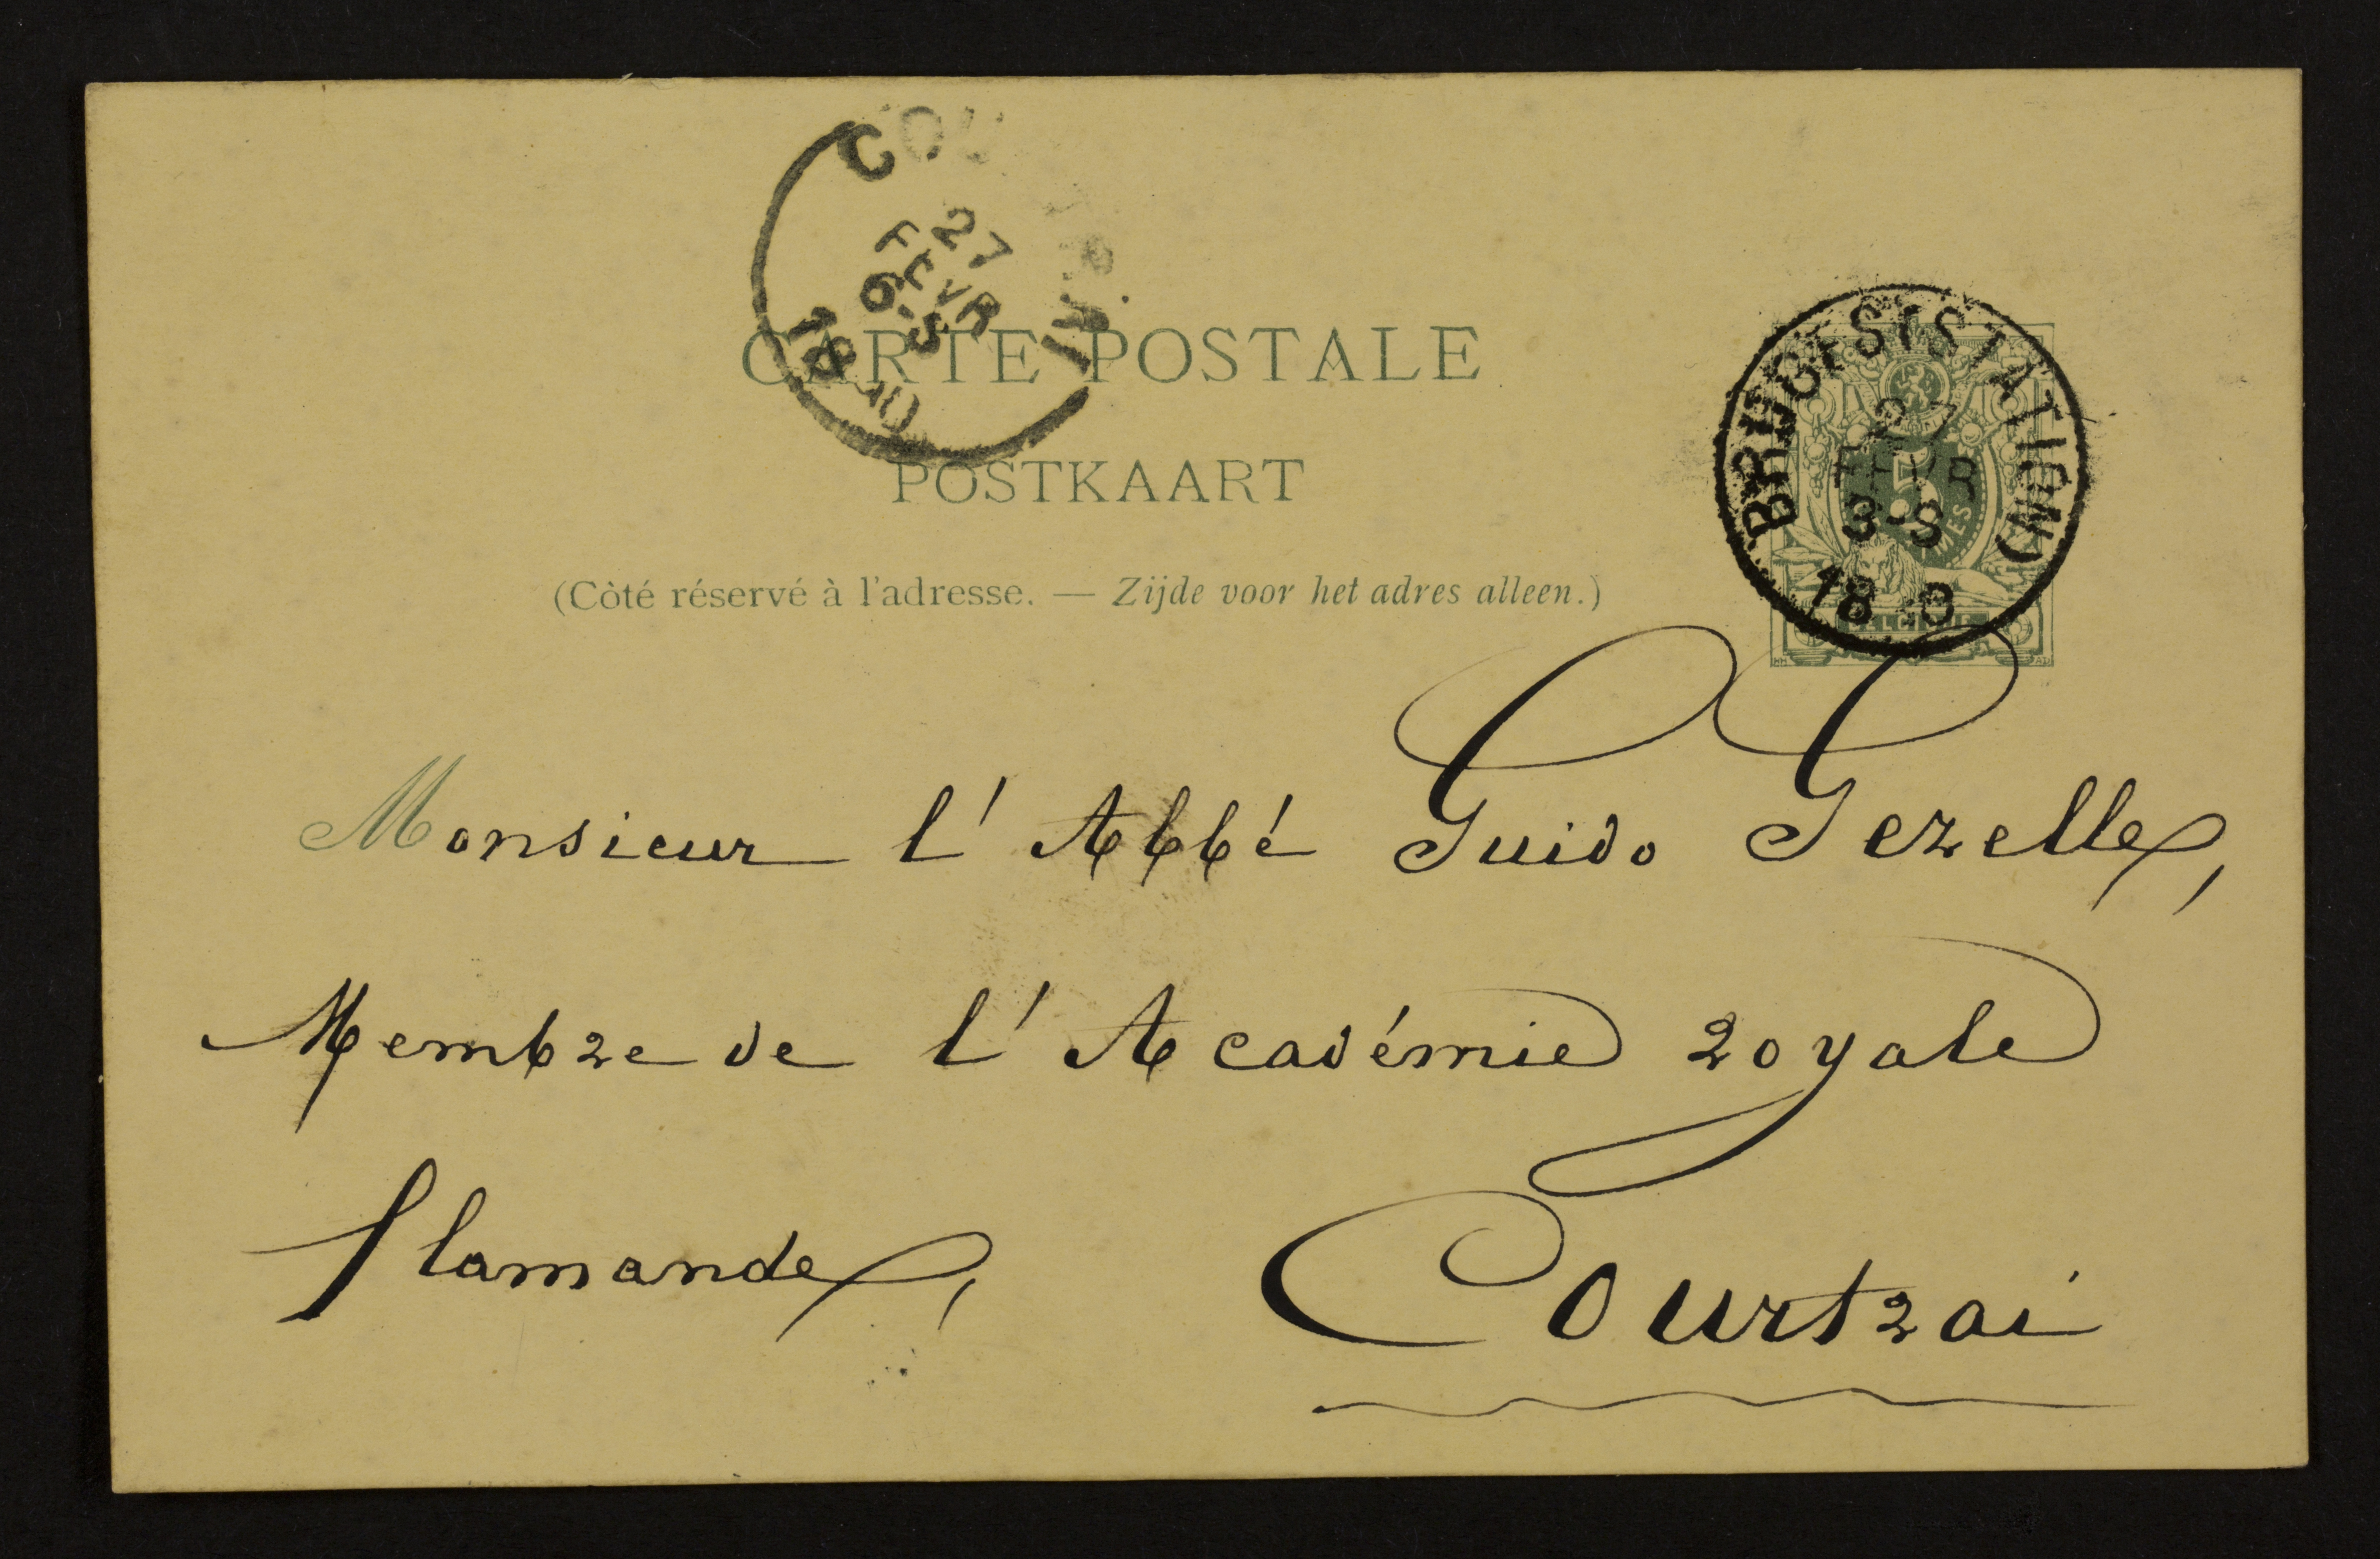 COU
27
FEVR
6-S
CARTE POSTALE
POSTKAART
(Côté réservé à l'adresse. — Zijde voor het adres alleen.)
BRUGES (STATION)
27
FEVR
3-S
5
BELGIQUE
Monsieur l'Abbé Guido Gezelle,
Membre de l'Académie royale
flamande,
Courtrai